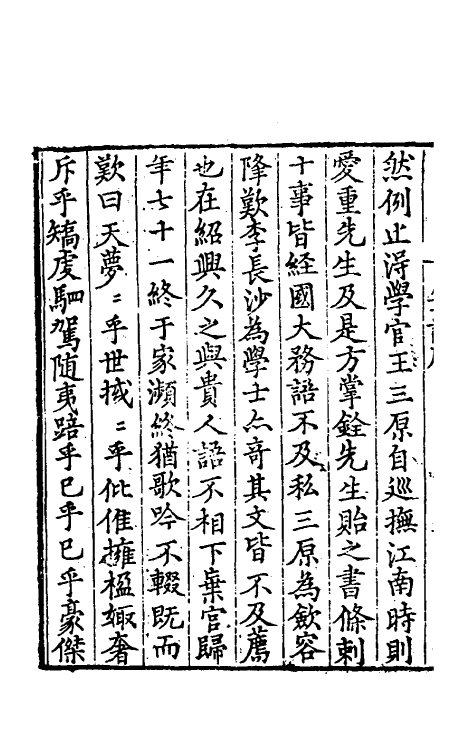 然例止淂學官王三原自巡撫江南時則
愛重先生及是方掌銓先生貽之書條剌
十事皆經國大務語不及私三原為歛容
降歎李長沙為學士亦奇其文皆不及薦
也在紹興久之與貴人語不相下棄官歸
年七十一終于家瀕終猶歌吟不輟既而
歎曰天夢〻乎世掝〻乎仳倠擁楹娵奢
斥乎矯虔駟駕随夷踣乎已乎已乎豪傑